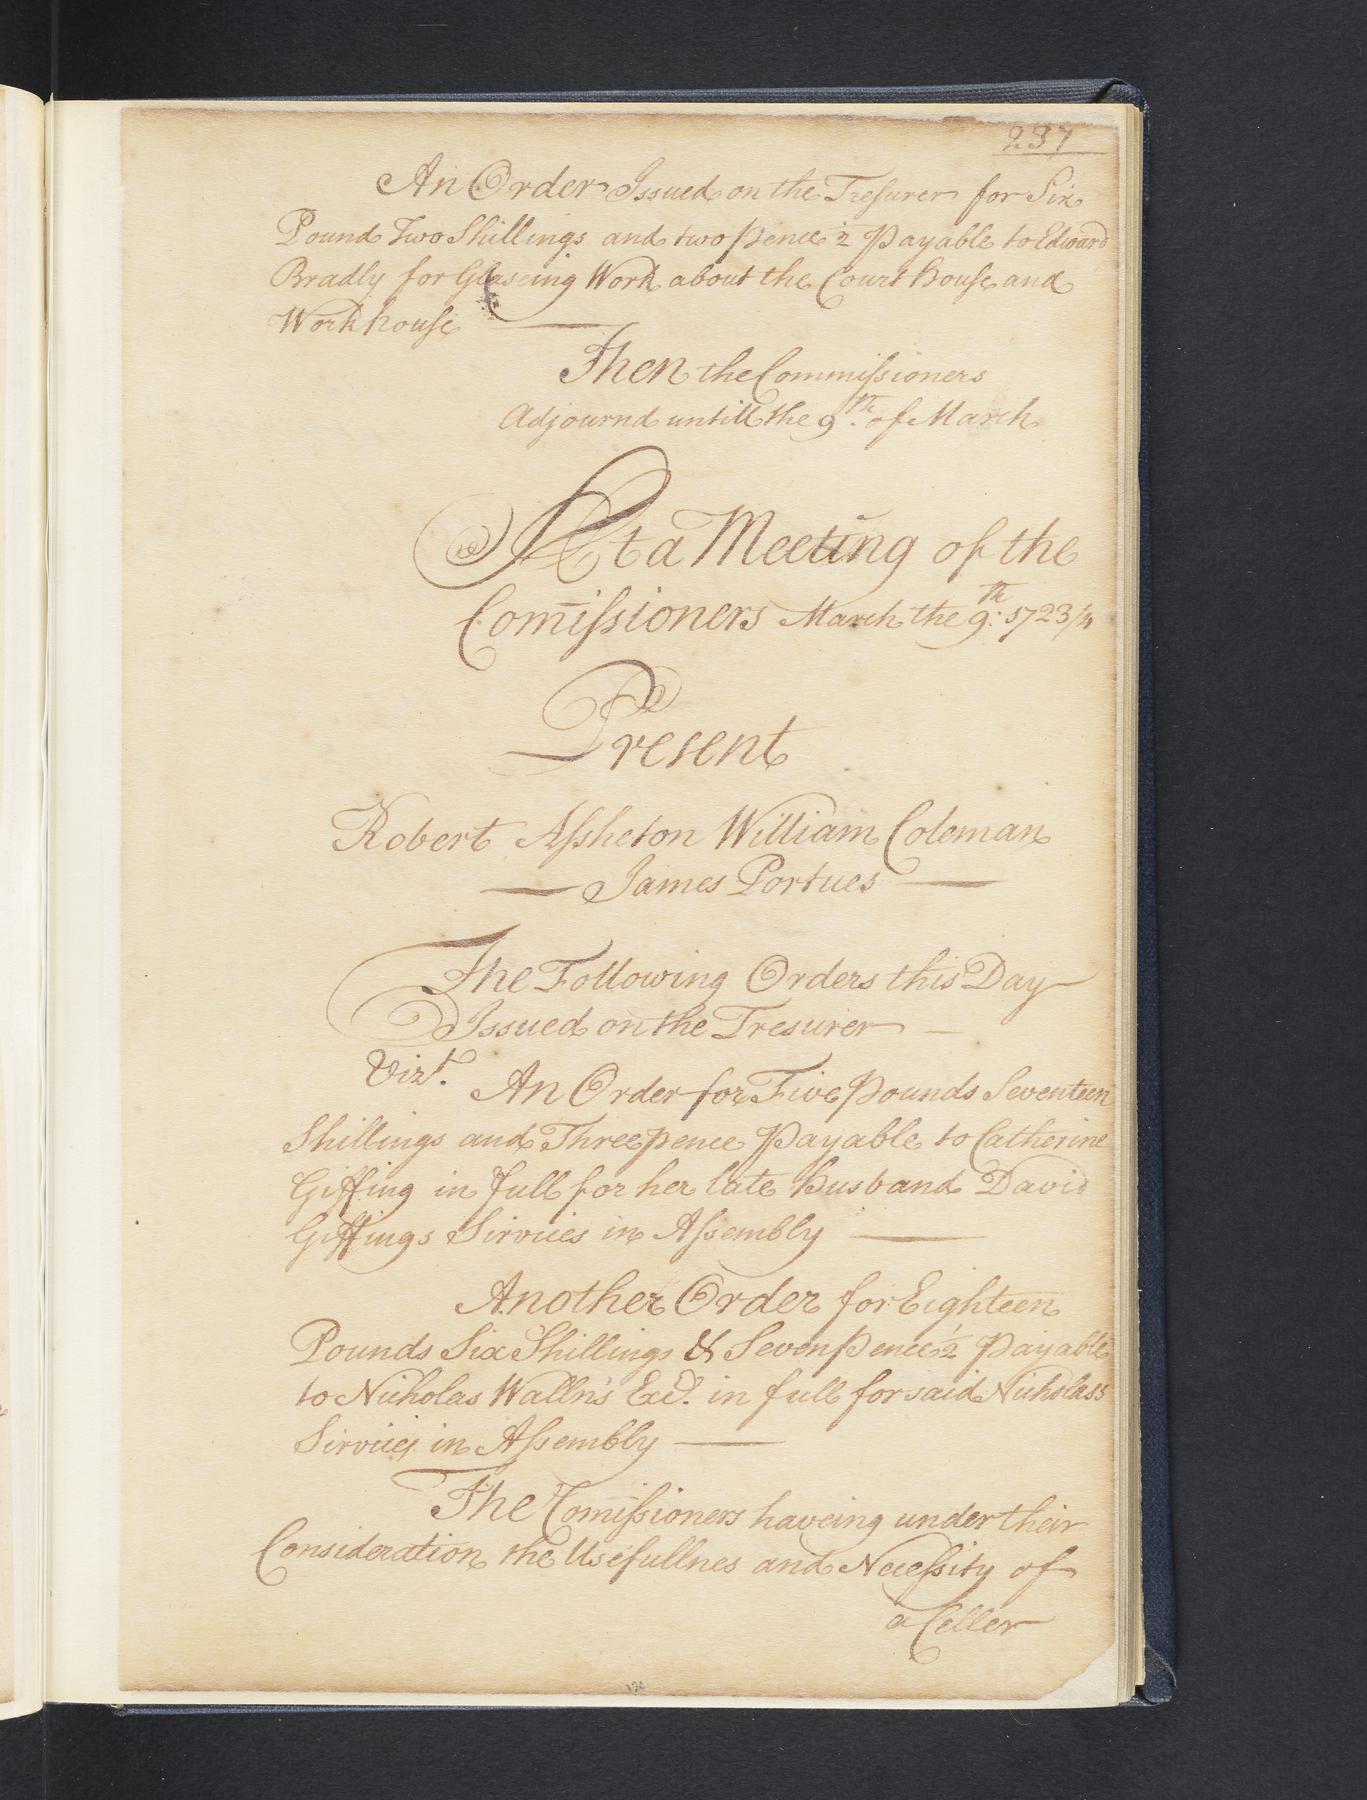 237
An Order Issued on the Tresurer for Six
Pound Two Shillings and two pence ½ Payable to Edward
Bradly for Glaseing Work about the Court House and
Workhouse
Then the Commissioners
Adjournd untill the 9th. of March
At a Meeting of the
Com̄issioners March the 9th: 1723/4
Present
Robert Assheton William Coleman
— James Portues —
The Following Orders this Day
Issued on the Tresurer —
Vizt. An Order for Five Pounds Seventeen
Shillings and Three pence Payable to Catherine
Giffing in full for her late Husband David
Giffings Sirvices in Assembly —
Another Order for Eighteen
Pounds Six Shillings & Seven Pence ½ Payable
to Nicholas Walln's Exd. in full for said Nicholass
Sirvices in Assembly —
The Com̄issioners haveing under their
Consideration the Usefullnes and Necessity of
a Celler